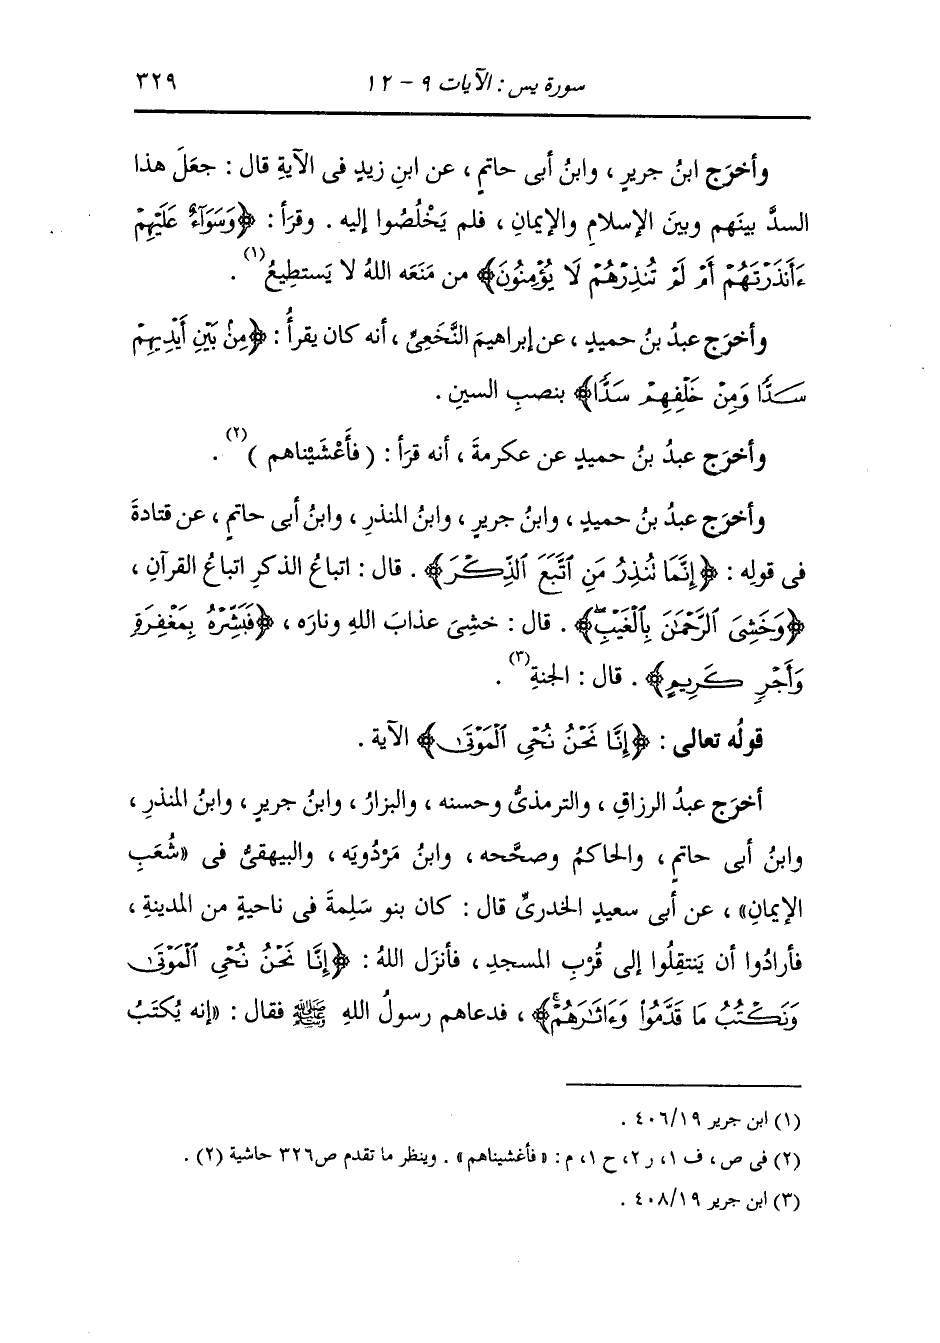 سورة يس : الآيات ٩ - ١٢ ٣٢٩
وأخرَج ابنُ جريرٍ ، وابنُ أبى حاتمٍ ، عن ابنِ زيدٍ فى الآيةِ قال : جعَلَ هذا
السدَّ بينَهم وبينَ الإسلامِ والإيمانِ ، فلم يَخْلُصُوا إليه . وقرَأ : ﴿وَسَوَآءٌ عَلَيْهِمْ
ءَأَنذَرْتَهُمْ أَمْ لَمْ تُنذِرْهُمْ لَا يُؤْمِنُونَ﴾ من مَنَعَه اللهُ لا يَستطِيعُ(١) .
وأخرَج عبدُ بنُ حميدٍ ، عن إبراهيمَ النَّخَعِىِّ ، أنه كان يقرأُ : ﴿مِنۢ بَيْنِ أَيْدِيهِمْ
سَدًّا وَمِنْ خَلْفِهِمْ سَدًّا﴾ بنصبِ السينِ .
وأخرَج عبدُ بنُ حميدٍ عن عكرمةَ ، أنه قرَأ : ( فأَعْشَيْناهم )(٢) .
وأخرَج عبدُ بنُ حميدٍ ، وابنُ جريرٍ ، وابنُ المنذرِ ، وابنُ أبى حاتمٍ ، عن قتادةَ
فى قولِه : ﴿إِنَّمَا تُنذِرُ مَنِ ٱتَّبَعَ ٱلذِّكْرَ﴾ . قال : اتباعُ الذكرِ اتباعُ القرآنِ ،
﴿وَخَشِىَ ٱلرَّحْمَٰنَ بِٱلْغَيْبِۖ﴾ . قال : خشِىَ عذابَ اللهِ ونارَه ، ﴿فَبَشِّرْهُ بِمَغْفِرَةٍ
وَأَجْرٍ كَرِيمٍ﴾ . قال : الجنةِ(٣) .
قولُه تعالى : ﴿إِنَّا نَحْنُ نُحْىِ ٱلْمَوْتَىٰ﴾ الآية .
أخرَج عبدُ الرزاقِ ، والترمذىُّ وحسنه ، والبزارُ ، وابنُ جريرٍ ، وابنُ المنذرِ ،
وابنُ أبى حاتمٍ ، والحاكمُ وصحَّحه ، وابنُ مَرْدُويَه ، والبيهقىُّ فى «شُعَبِ
الإيمانِ» ، عن أبى سعيدٍ الخدرىِّ قال : كان بنو سَلِمةَ فى ناحيةٍ من المدينةِ ،
فأرادُوا أن يَنتقِلُوا إلى قُرْبِ المسجدِ ، فأنزَل اللهُ : ﴿إِنَّا نَحْنُ نُحْىِ ٱلْمَوْتَىٰ
وَنَكْتُبُ مَا قَدَّمُوا۟ وَءَاثَٰرَهُمْۚ﴾ ، فدعاهم رسولُ اللهِ ﷺ فقال : «إنه يُكتَبُ
(١) ابن جرير ٤٠٦/١٩ .
(٢) فى ص ، ف ١، ر ٢، ح ١، م : «فأغشيناهم» . وينظر ما تقدم ص٣٢٦ حاشية (٢) .
(٣) ابن جرير ٤٠٨/١٩ .